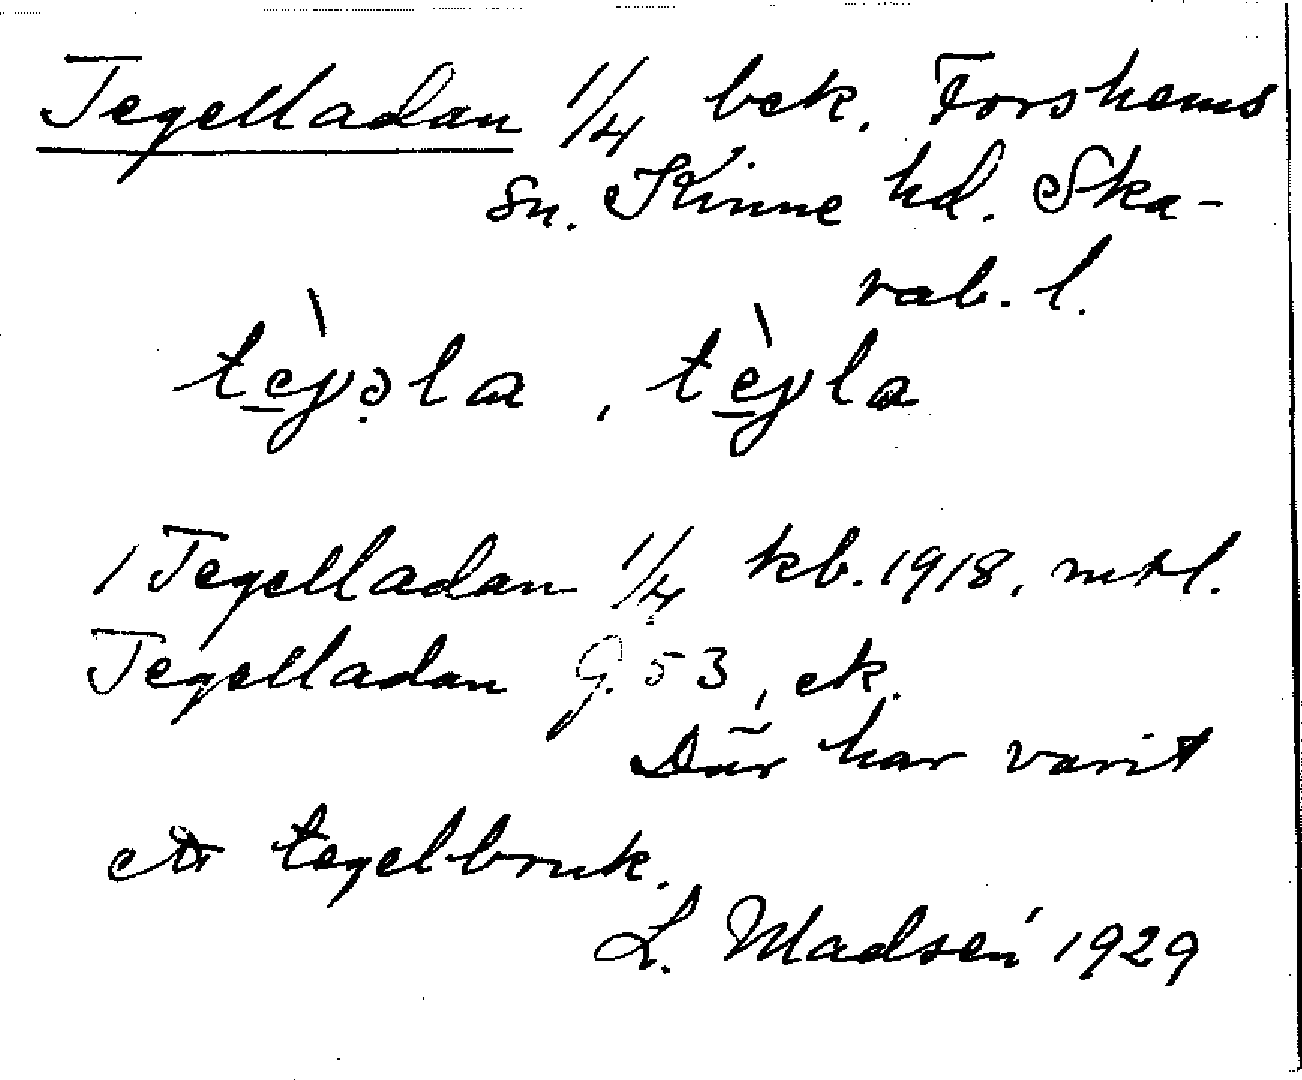 Tegelladan 1/4 bek. Forshems
sn. Kinne hd. Ska-
rab. l.
tèɣəla, tèɣla
1 Tegelladan 1/4 kb. 1918, mtl.
Tegelladan G. 53, ek.
Där har varit
ett tegelbruk.
L. Madsén 1929